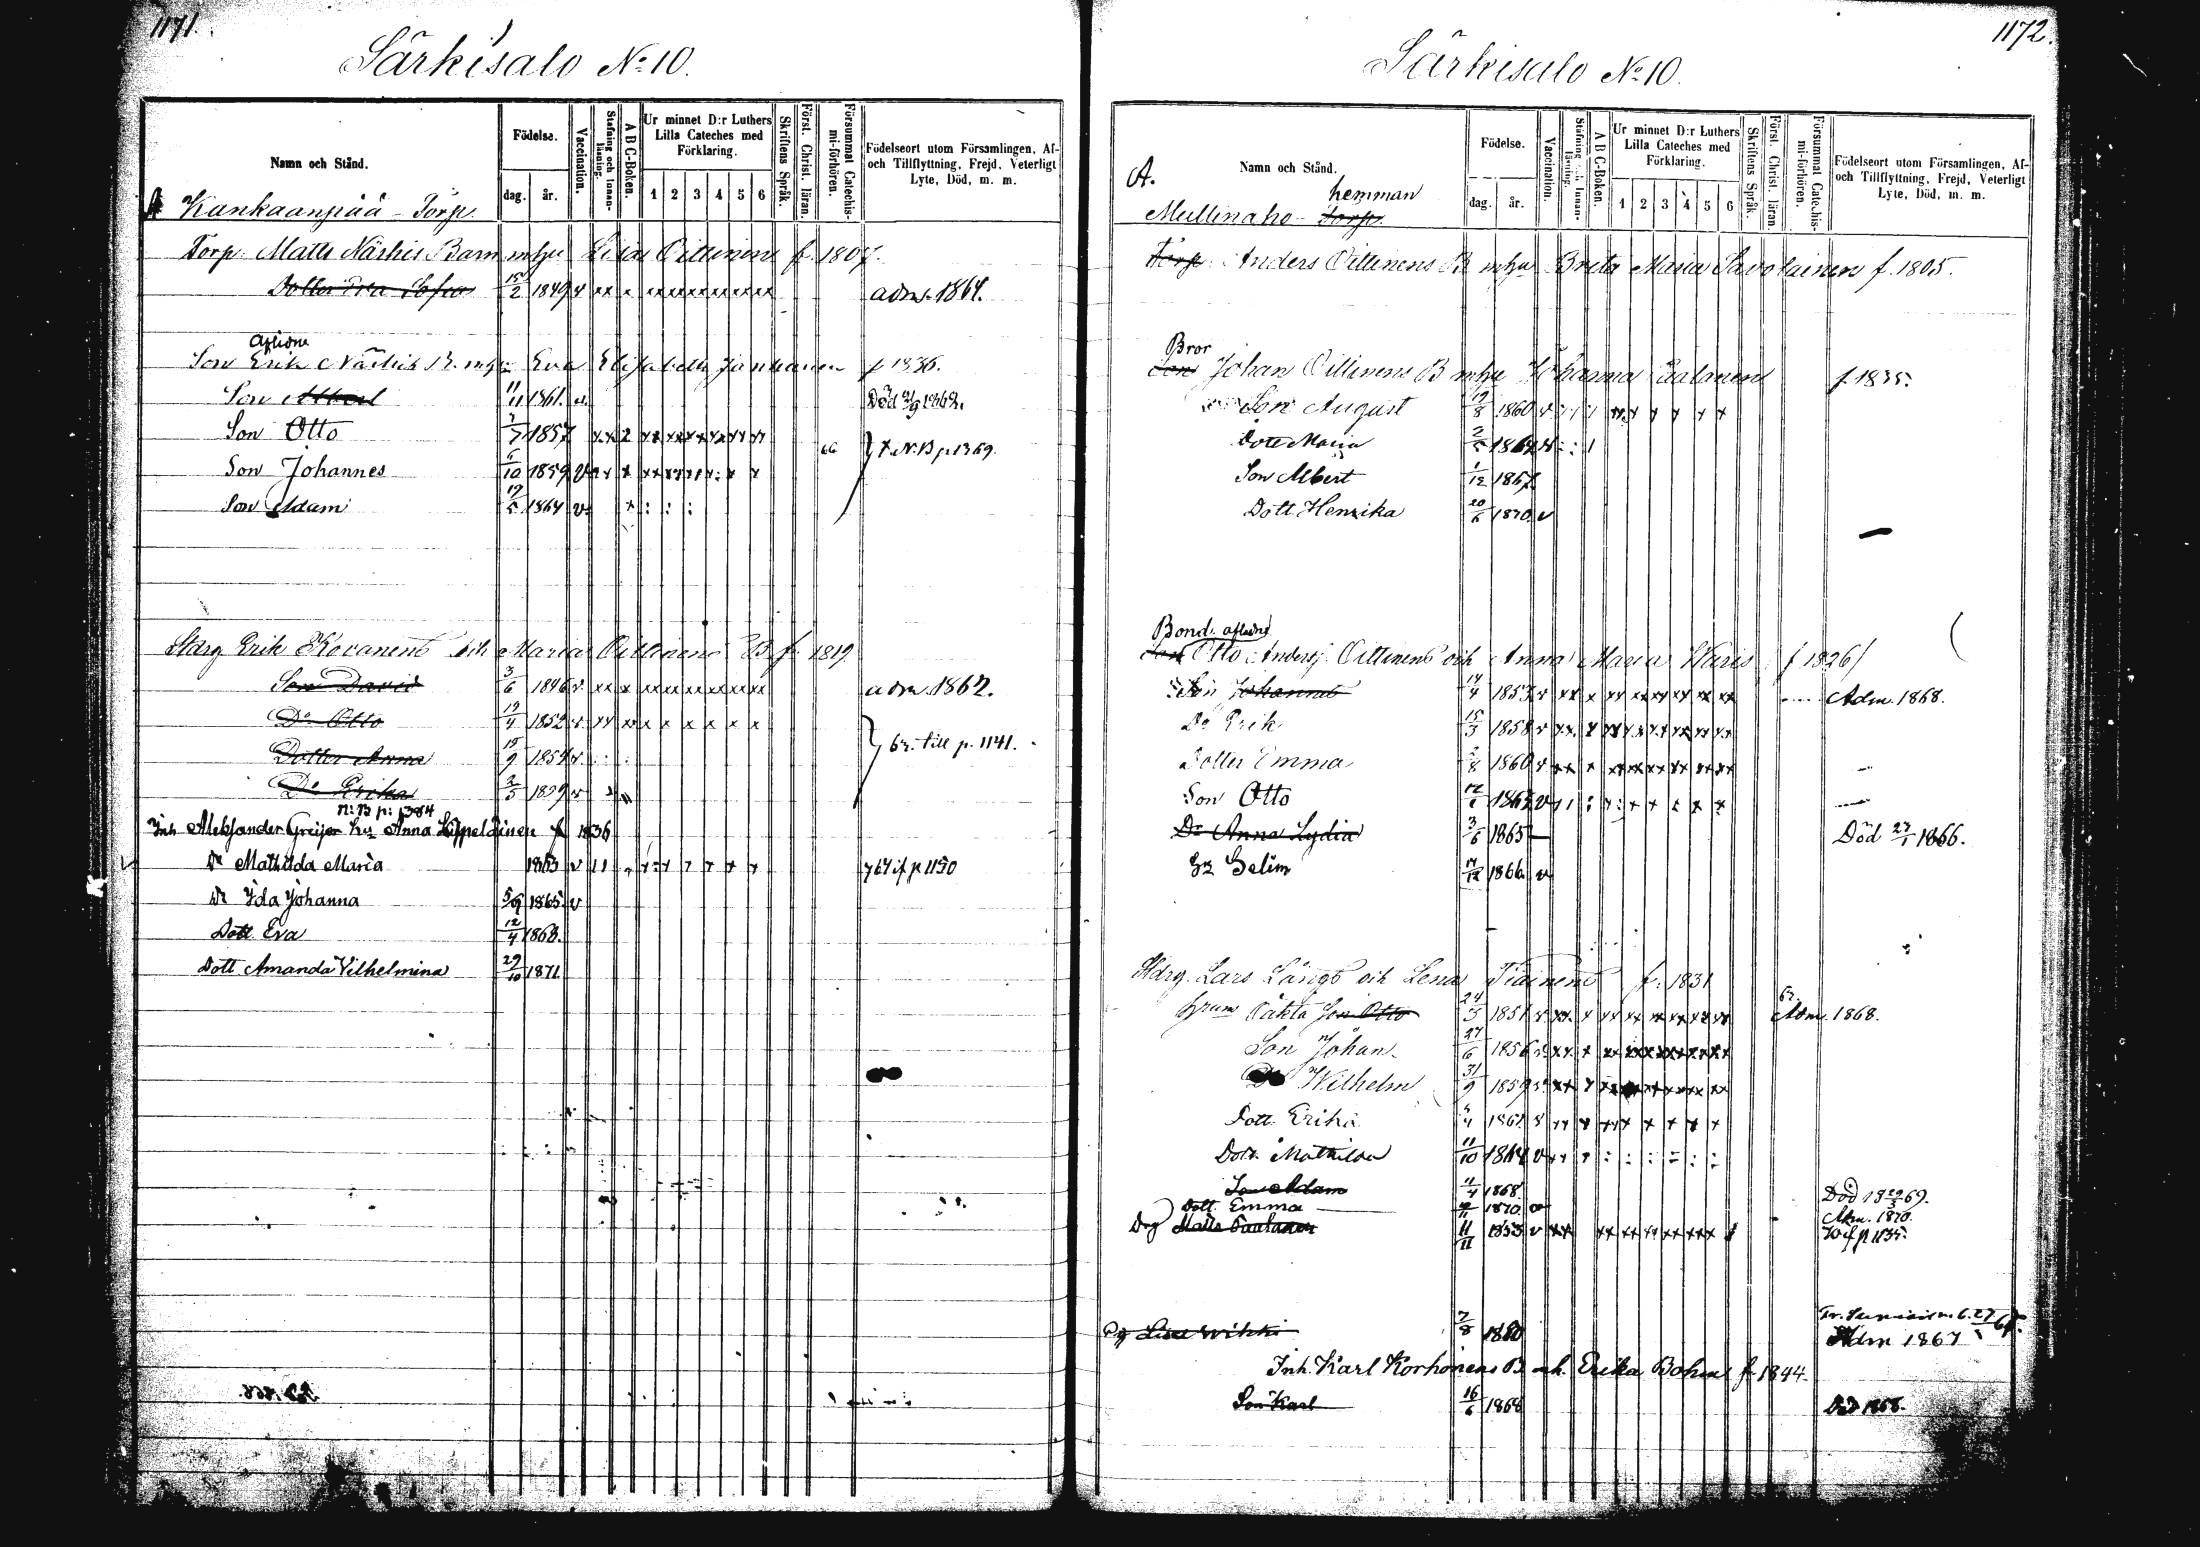 1171.
Särkisalo No 10.
Namn och Stånd.
Födelse.
dag. år.
Vaccination.
Stafning och Innanläsning.
A B C-Boken.
Ur minnet D:r Luthers Lilla Cateches med Förklaring.
1 2 3 4 5 6
Skriftens Språk.
Först. Christ. läran.
Försummat Catechismi-förhören.
Födelseort utom Församlingen, Af- och Tillflyttning, Frejd, Veterligt Lyte, Död, m. m.
Kankaanpää - Torp.
Torp. Matts Närhis Barn mhu Lisa Oittinens f. 1807.
Dotter Eva Sofia 15/2 1849 v adm. 1864.
aflidne
Son Erik Närhis B. mhu Eva Elisabeth Janhunen f 1836.
Son Albert 11/11 1861. Död 1868.
Son Otto 1857
Son Johannes /10 1859 v N.B p. 1369.
Son Adam 19/5 1864 v
Stdrg Erik Kovanens och Maria Oittinens B. f. 1819
Son David 3/6 1846 v adm. 1862.
Do Otto 19/4 1852 v
Dotter Anna /9 1854 v fr. till p. 1141.
Do Erika 2/3 1859 v
N:B p: 1384
Inh Aleksander Greijer hu Anna Leppeläinen f 1836
Dr Mathilda Maria 1863 v p 1150
Dr Ida Johanna 5/9 1865 v
Dott. Eva 12/4 1868.
Dott Amanda Vilhelmina 29/10 1871
1172.
Särkisalo No 10.
A.
Namn och Stånd.
Födelse.
dag. år.
Vaccination.
Stafning och Innanläsning.
A B C-Boken.
Ur minnet D:r Luthers Lilla Cateches med Förklaring.
1 2 3 4 5 6
Skriftens Språk.
Först. Christ. läran.
Försummat Catechismi-förhören.
Födelseort utom Församlingen, Af- och Tillflyttning, Frejd, Veterligt Lyte, Död, m. m.
hemman
Mullinaho - Torp.
Torp. Anders Oittinens B mhu Brita Maria Savolainen f. 1805.
Bror
Son Johan Oittinens B mhu Johanna Paalanen f. 1835.
Son August 19/8 1860 v
Dott Maria 1864
Son Albert 1/12 1867
Dott. Henrika 20/6 1870. v
Bond. aflidne
Son Otto Andersj. Oittinens och Anna Maria Waris f 1826
Son Johannes 14/4 1853 v Adm. 1868.
Do Erik 15/3 1858 v
Dotter Emma /8 1860 v
Son Otto 1863 v
Do Anna Lydia 3/6 1865 Död 23/1 1866.
Selim /12 1866. v
Stdrg. Lars Långs och Lena Tiainens f. 1831
Son Otto 24/3 1851 v Adm. 1868.
Son Johan 27/6 1856 v
Do Wilhelm 31/9 1859 v
Dott. Erika /4 1862 v
Dott. Mathilda 11/10 1864 v
Son Adam /4 1868 Död 69.
Dott. Emma 1870
Drg Matts Paalanen 11/11 1853 v Adm. 1870.
p 1135.
Lisa Wikki 7/8 1850 Adm 1867
Inh. Karl Korhonens B mh. Erika Bohm f. 1844.
Son Karl 16/6 1868 Död 1868.